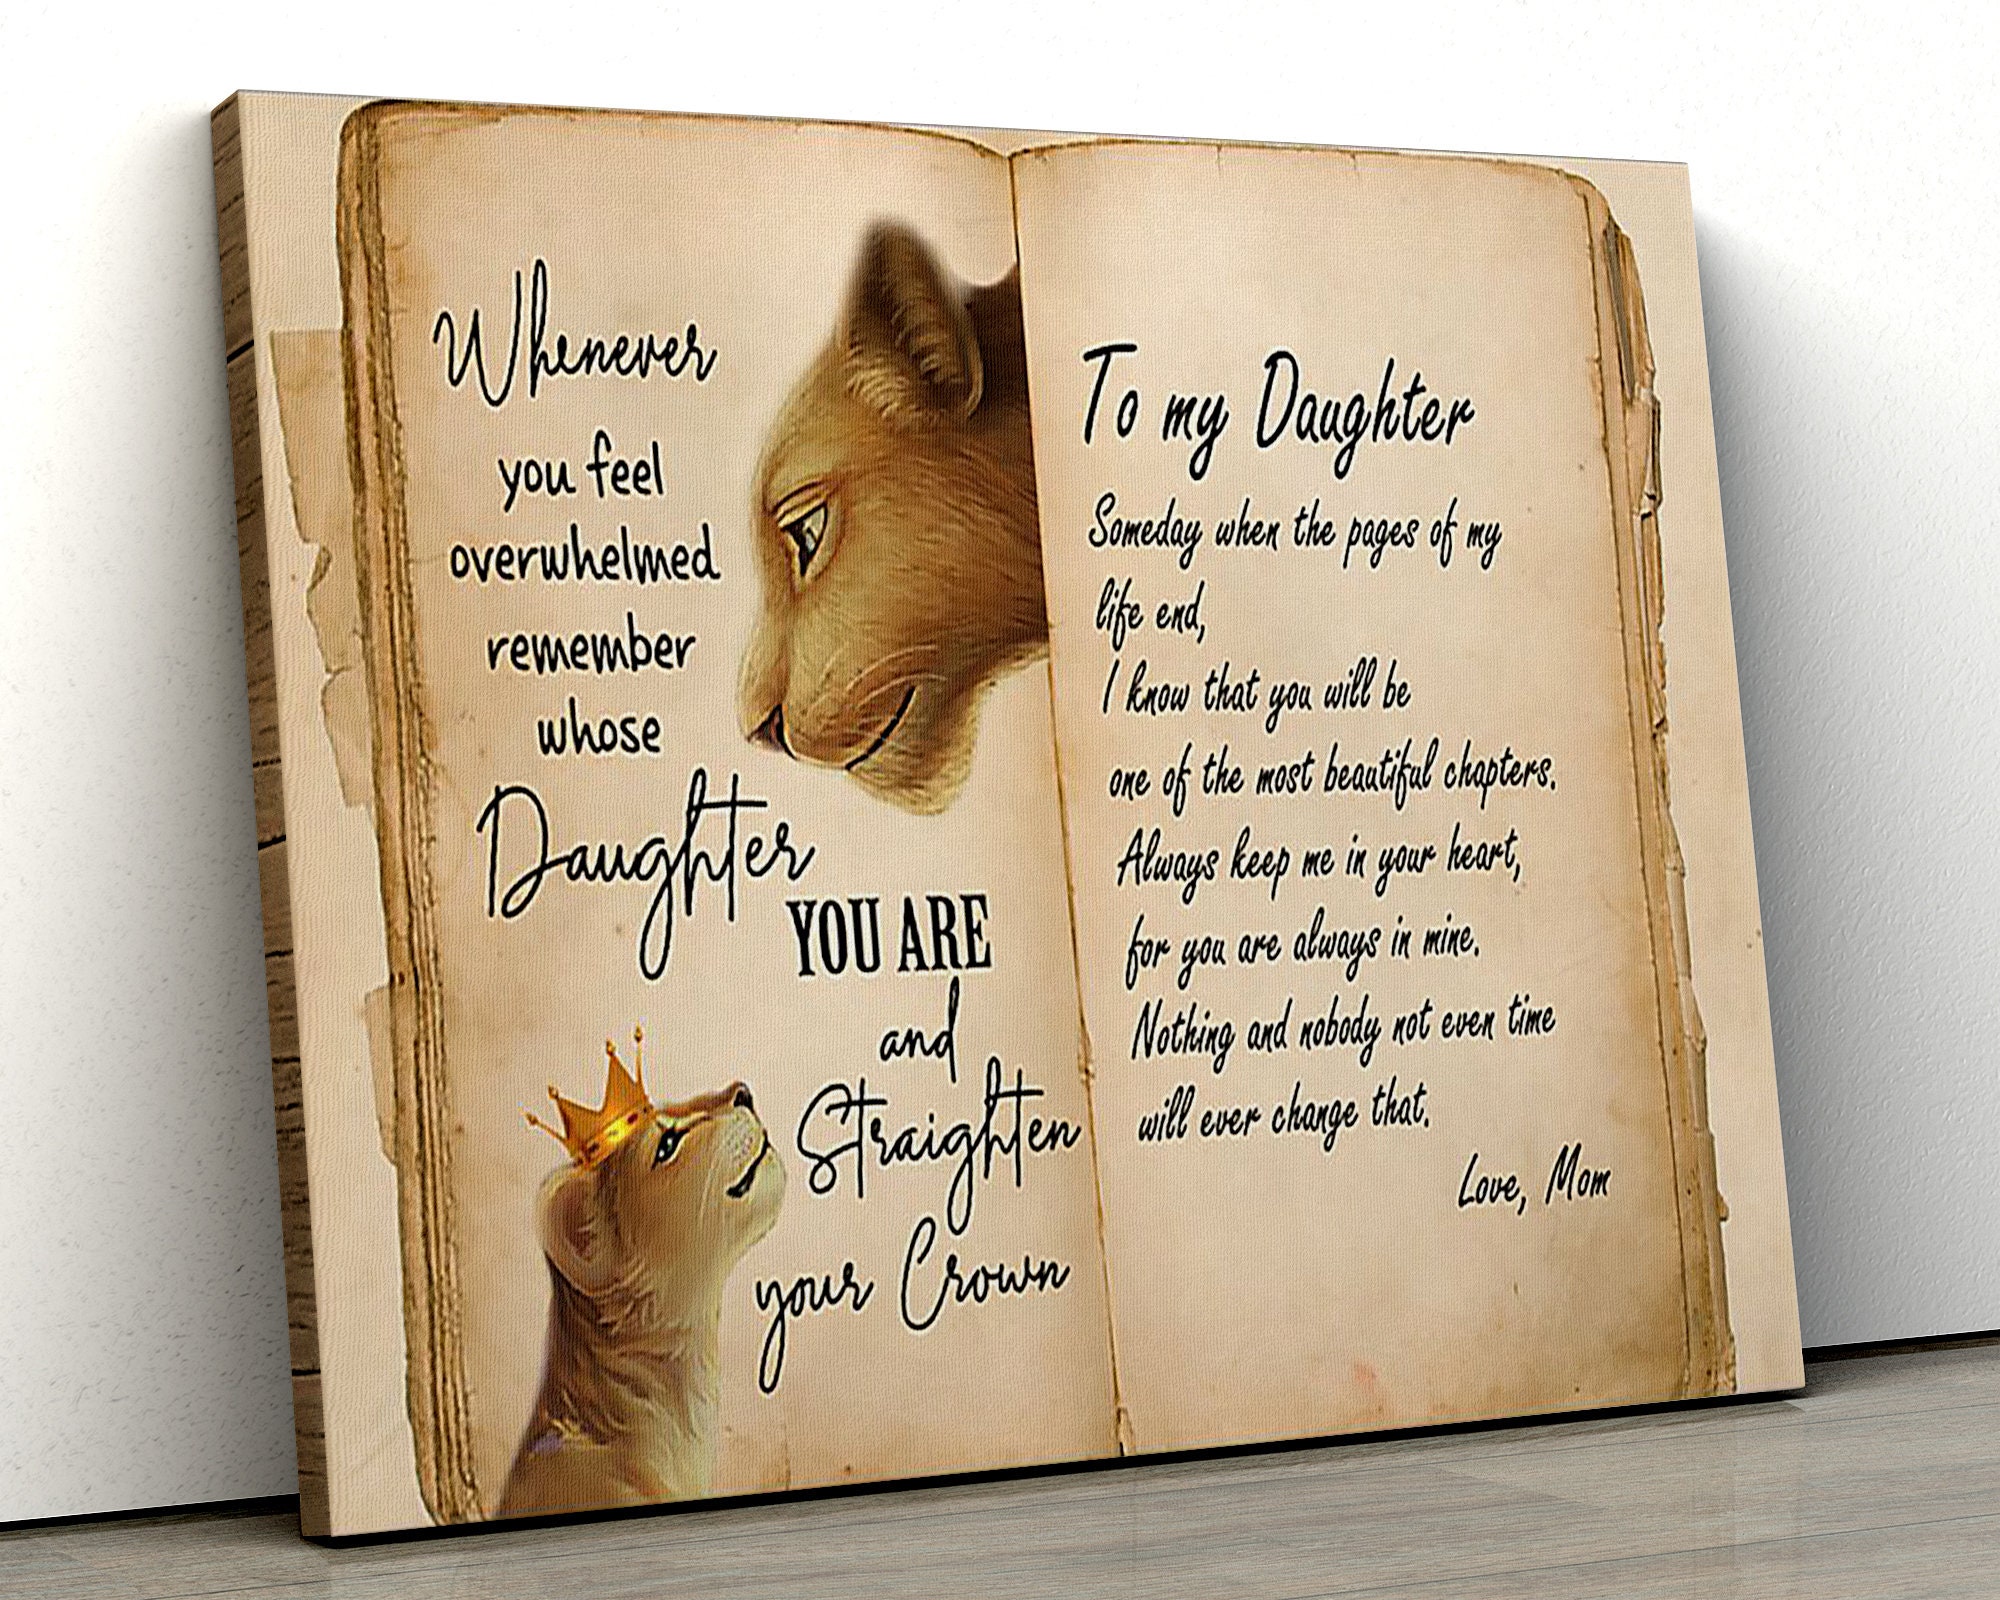 Whenever
you feel
overwhelmed
remember
whose
Daughter
YOU ARE
and
Straighten
your Crown
To my Daughter
Someday when the pages of my
life end,
I know that you will be
one of the most beautiful chapters.
Always keep me in your heart,
for you are always in mine.
Nothing and nobody not even time
will ever change that.
Love, Mom